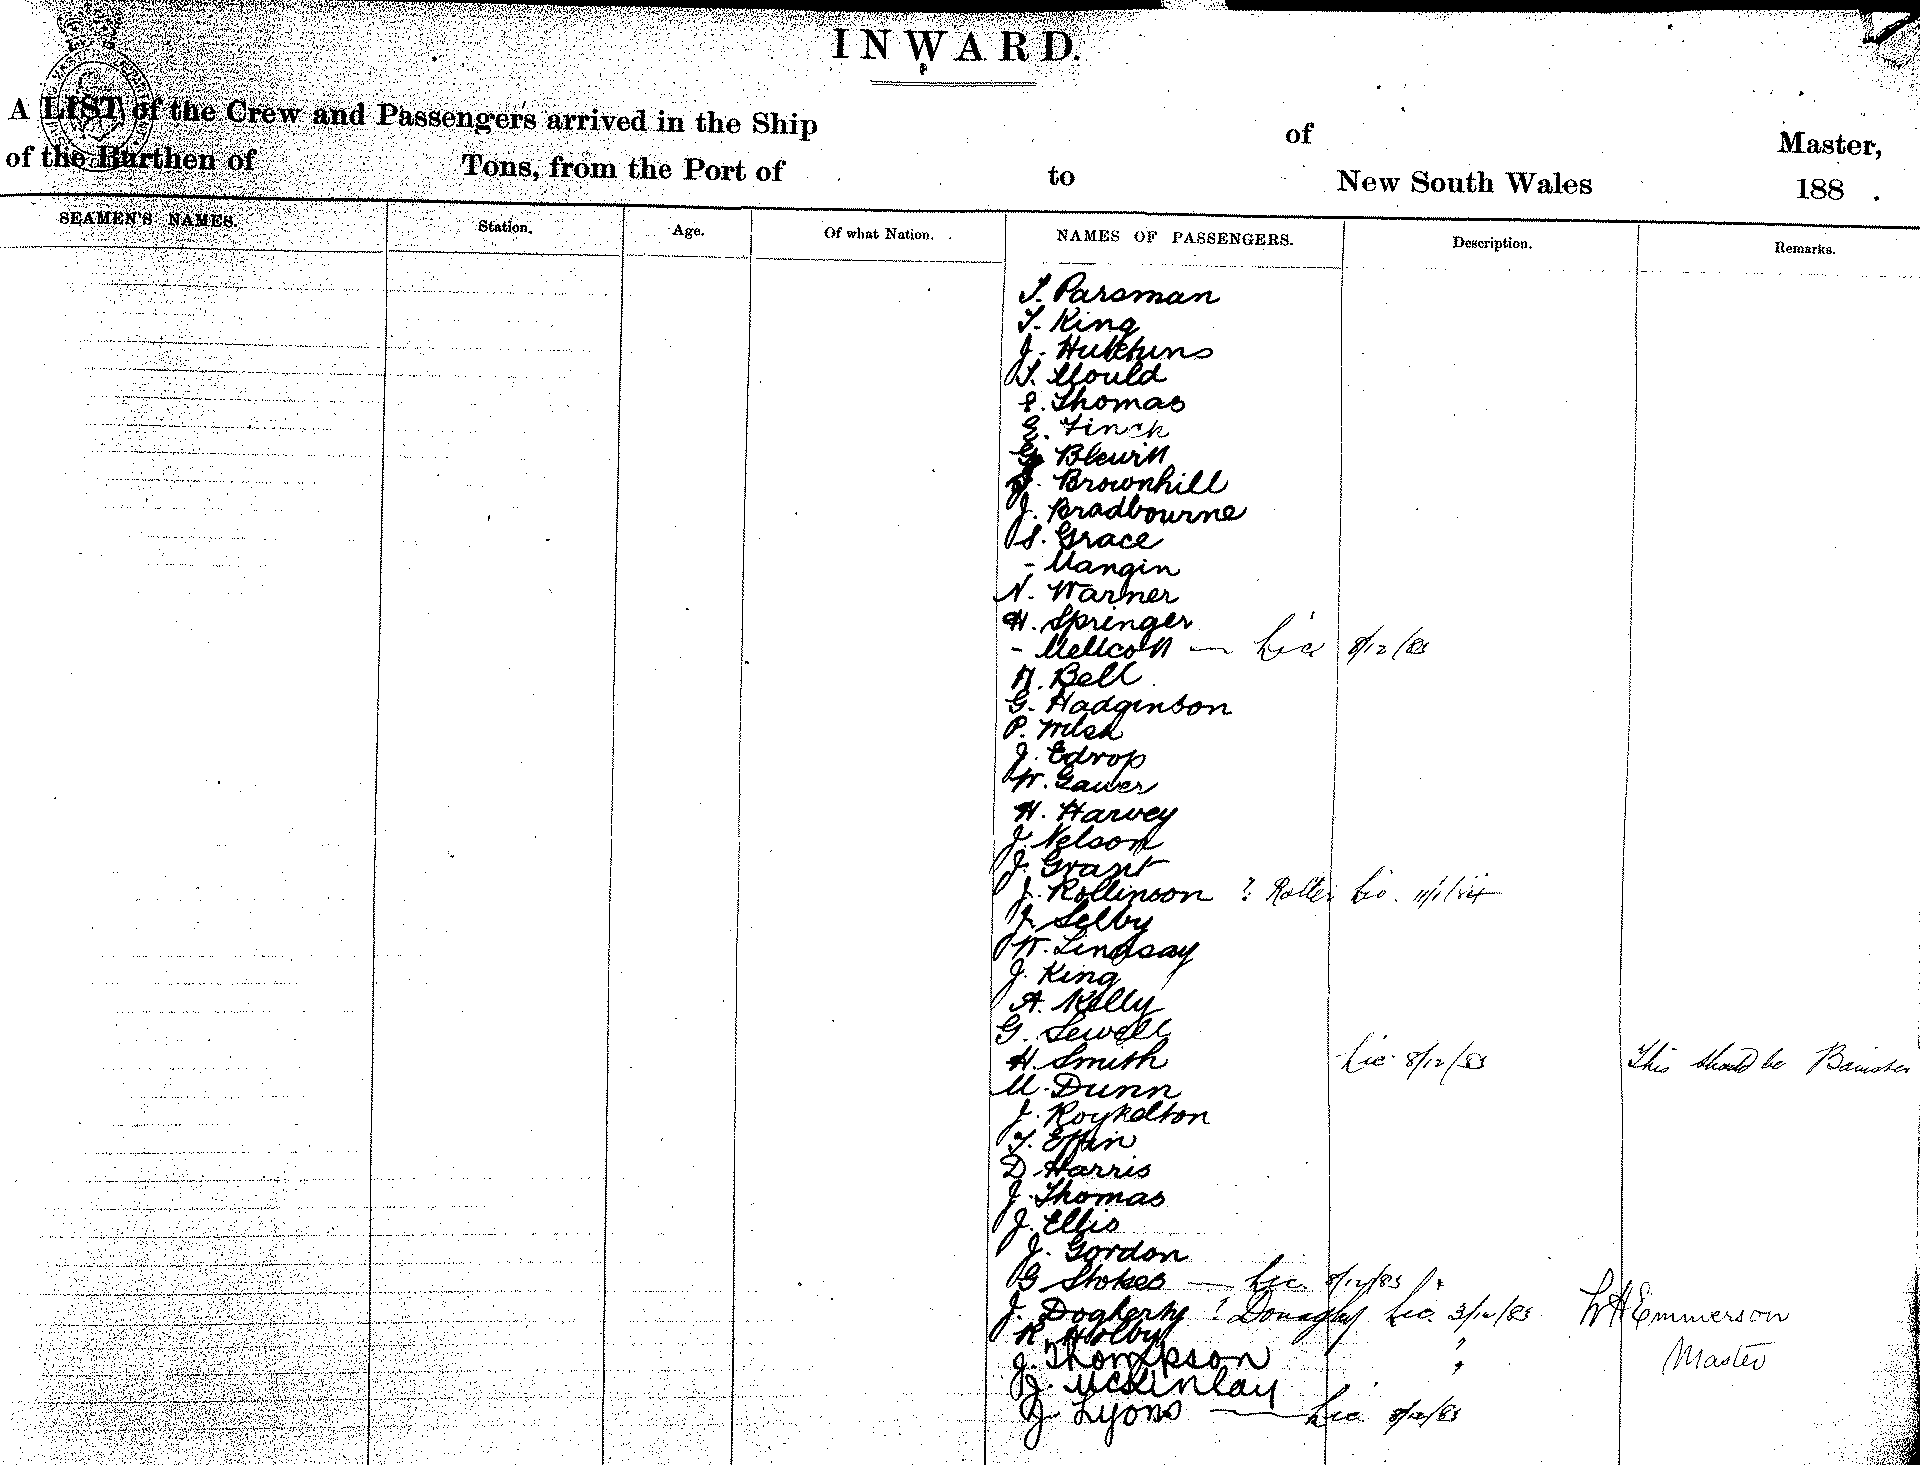 INWARD.
A LIST of the Crew and Passengers arrived in the Ship of Master,
of the Burthen of Tons, from the Port of to New South Wales 188 .
SEAMEN'S NAMES. Station. Age. Of what Nation. NAMES OF PASSENGERS. Description. Remarks.
T. Parsman
T. King
J. Hutchins
T. Mould
E. Thomas
E. Finch
G. Blewitt
J. Brownhill
J. Bradbourne
S. Grace
- Mangin
N. Warner
H. Springer
- Mellcott — Lic 8/12/83
H. Bell
G. Hadginson
P. Milsh
J. Edrop
W. Gawer
H. Harvey
J. Nelson
J. Grant
J. Rollinson ? Lic.
J. Selby
W. Lindsay
J. King
A. Kelly
G. Sewell
H. Smith Lic 8/12/83 This should be Banister
M. Dunn
J. Roykelton
T. Effin
D Harris
J. Thomas
J. Ellis
J. Gordon
G Stokes — Lic. 8/12/83
J. Dogherty ? Donaghy Lic. 3/12/83 W H Emmerson
R. Holby
J. Thompson Master
J. McKinlay
J. Lyons — Lic 8/12/83